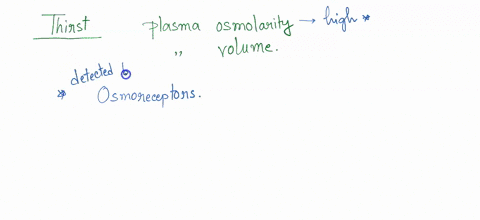 Thirst plasma osmolarity → high *
,, volume.
detected b
* Osmoreceptors.